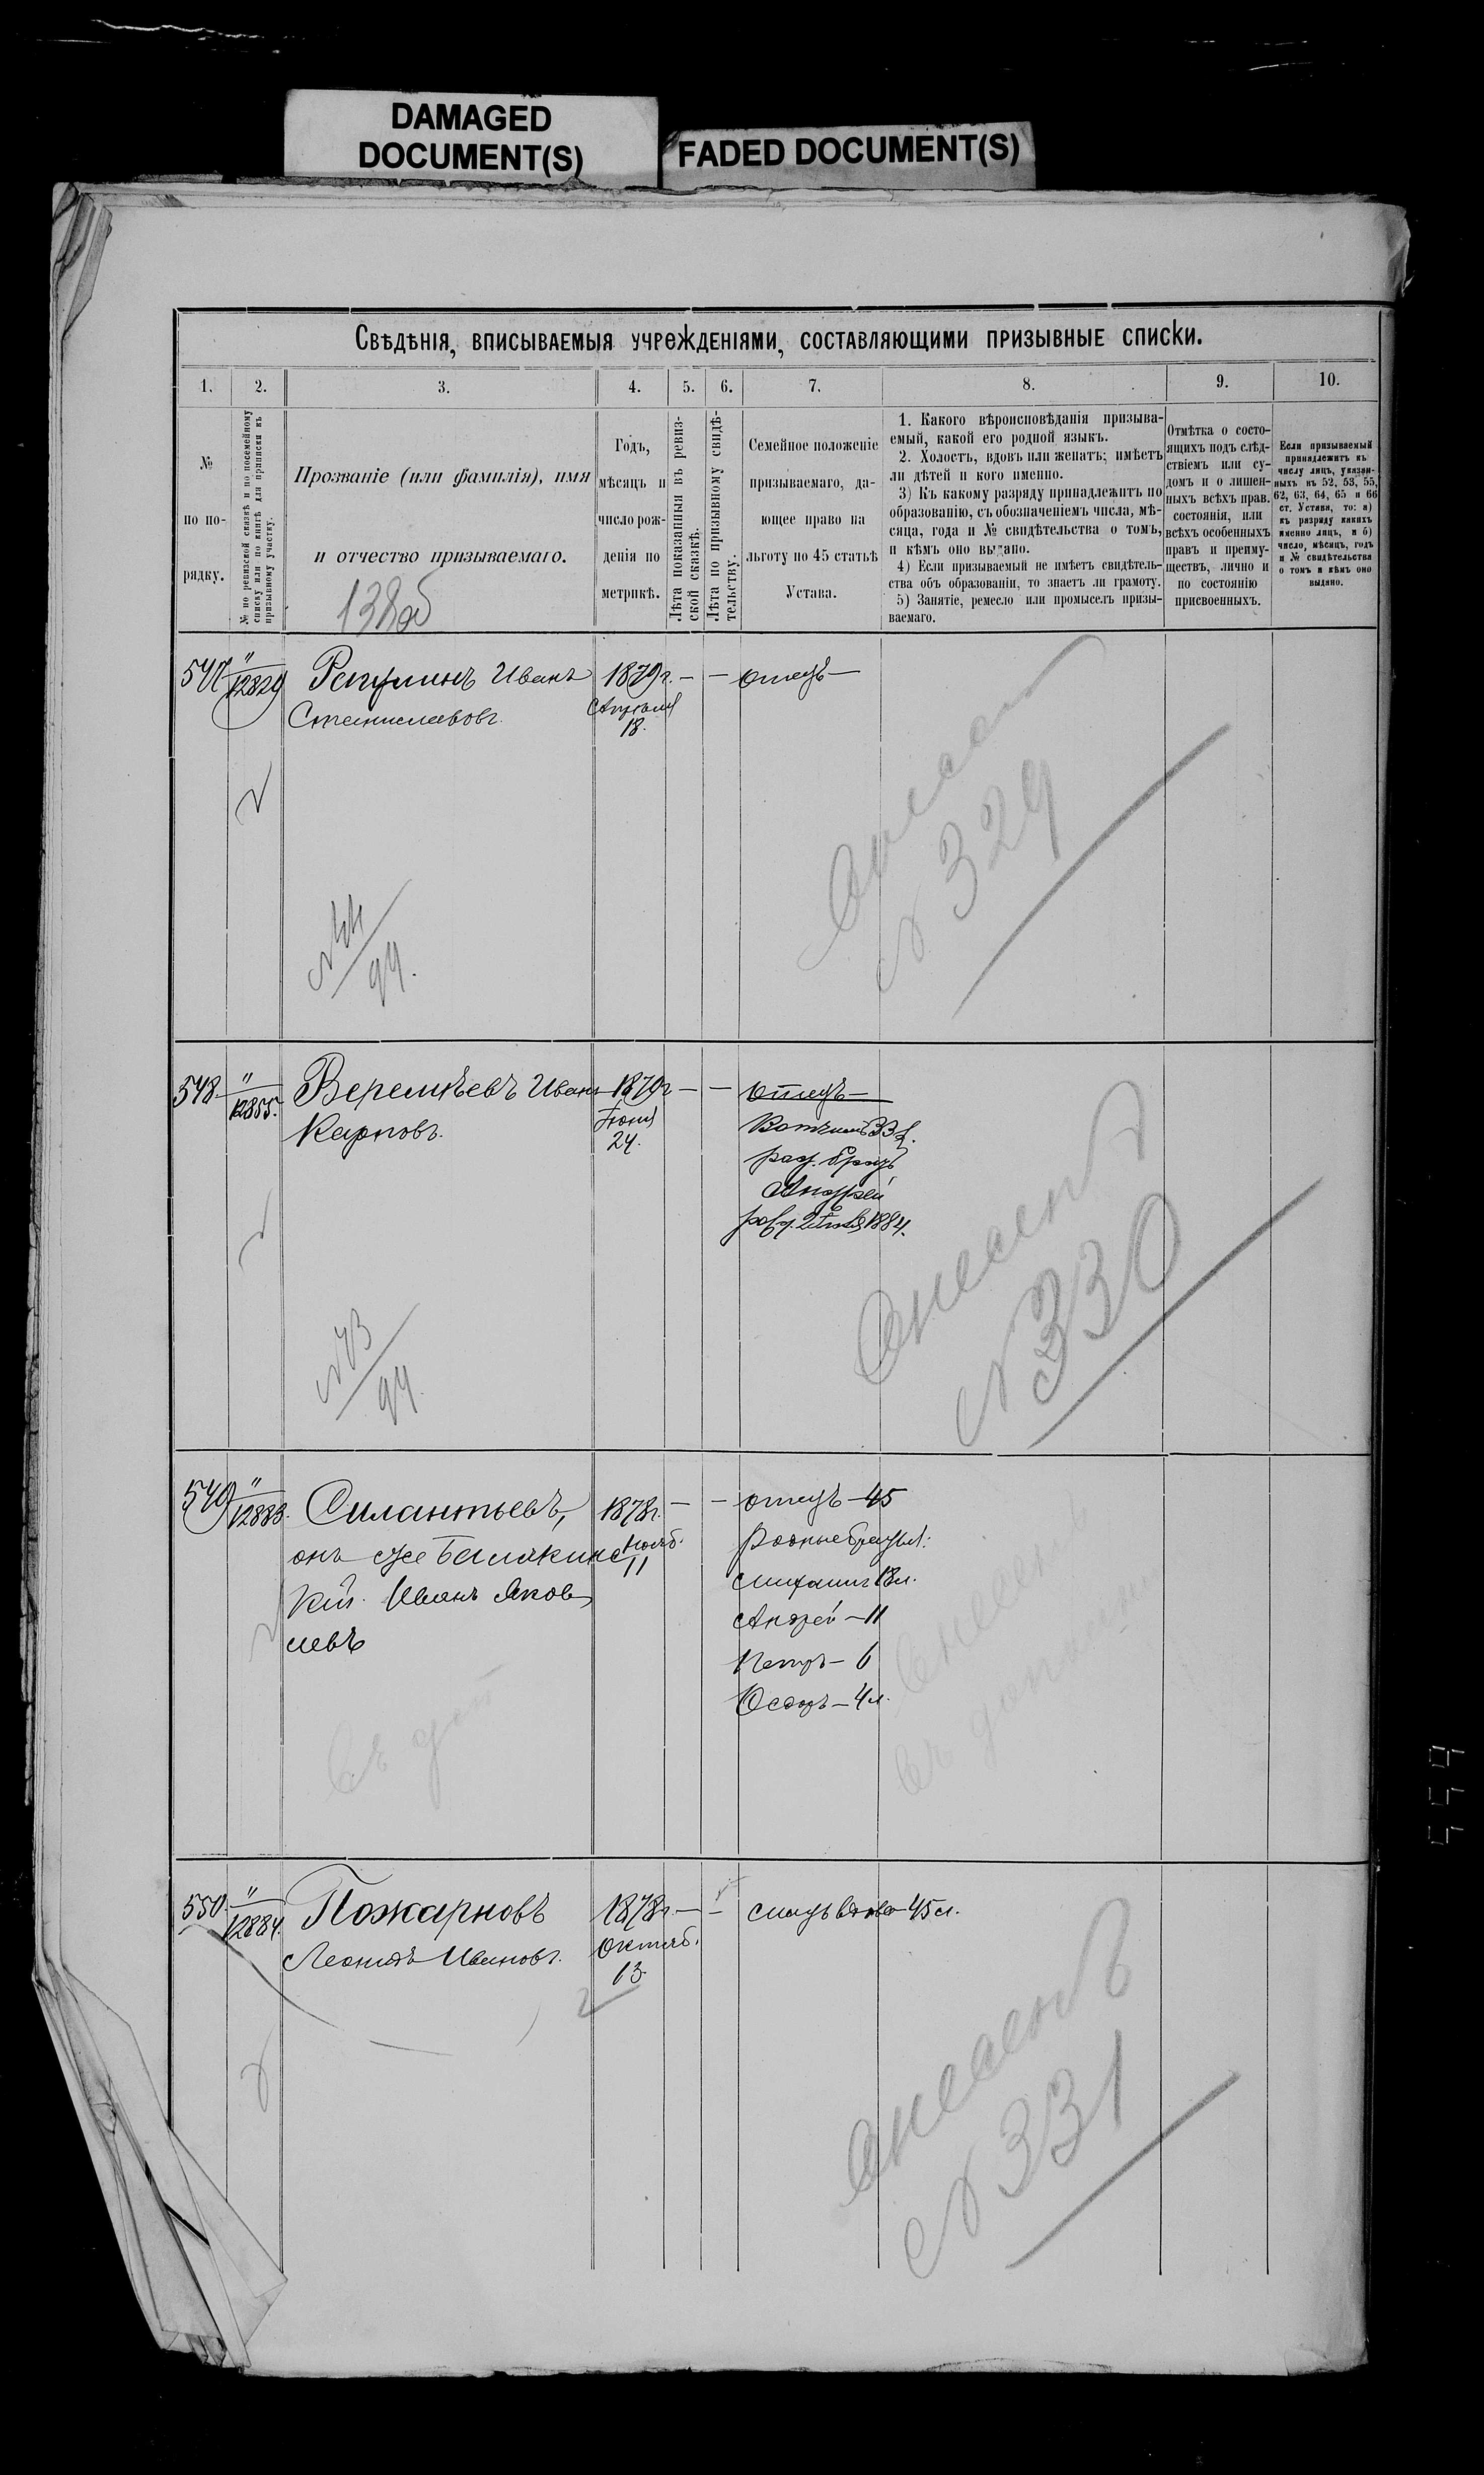 DAMAGED
DOCUMENT(S)
FADED DOCUMENT(S)
Свѣдѣнія, вписываемыя учрежденіями, составляющими призывные списки.
1. 2. 3. 4. 5. 6. 7. 8. 9. 10.
№
по по-
рядку.
№ по ревизской сказкѣ и по посемейному
списку или по книгѣ для приписки къ
призывному участку.
Прозваніе (или фамилія), имя
и отчество призываемаго.
138об
Годъ,
мѣсяцъ и
число рож-
денія по
метрикѣ.
Лѣта показанныя въ ревиз-
ской сказкѣ.
Лѣта по призывному свидѣ-
тельству.
Семейное положеніе
призываемаго, да-
ющее право на
льготу по 45 статьѣ
Устава.
1. Какого вѣроисповѣданія призыва-
емый, какой его родной языкъ.
2. Холостъ, вдовъ или женатъ; имѣетъ
ли дѣтей и кого именно.
3) Къ какому разряду принадлежитъ по
образованію, съ обозначеніемъ числа, мѣ-
сяца, года и № свидѣтельства о томъ,
и кѣмъ оно выдано.
4) Если призываемый не имѣетъ свидѣтель-
ства объ образованіи, то знаетъ ли грамоту.
5) Занятіе, ремесло или промыселъ призы-
ваемаго.
Отмѣтка о состо-
ящихъ подъ слѣд-
ствіемъ или су-
домъ и о лишен-
ныхъ всѣхъ прав.
состоянія, или
всѣхъ особенныхъ
правъ и преиму-
ществъ, лично и
по состоянію
присвоенныхъ.
Если призываемый
принадлежитъ къ
числу лицъ, указан-
ныхъ въ 52, 53, 55,
62, 63, 64, 65 и 66
ст. Устава, то: а)
къ разряду какихъ
именно лицъ, и б)
число, мѣсяцъ, годъ
и № свидѣтельства
о томъ и кѣмъ оно
выдано.
547 " 12829 Иванъ 1879г. — — отецъ —
Станиславовъ. Апрѣля
18.
№ 329
99.
548 " 12855. Веремѣевъ Иванъ 1879г — — отецъ —
Карповъ. Іюня
24.
Вотчимъ 33 л.
род. братъ
Андрей
1884.
Внесенъ
№ 330
99.
549 " 12883. Силантьевъ, 1878г. — — отецъ — 45
онъ же Нояб.
11
Иванъ Яков
левъ
родные братья:
18 л.
Андрей — 11
Петръ — 6
Ѳедоръ — 4 л.
Внесенъ
550. " 12884. Пожарновъ 1878г. — — мать вдова 45 л.
Леонтій Ивановъ. Октяб.
13.
Внесенъ
№ 331